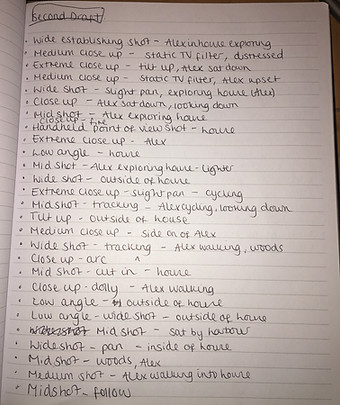 Second Draft
• Wide establishing shot - Alex in house exploring
• Medium close up - static TV filter, distressed
• Extreme close up - tilt up, Alex sat down
• Medium close up - static TV filter, Alex upset
• Wide shot - slight pan, exploring house (Alex)
• Close up - Alex sat down, looking down
• Mid shot - Alex exploring house
close up - fire
• Handheld point of view shot - house
• Extreme close up - Alex
• Low angle - house
• Mid shot - Alex exploring house - lighter
• Wide shot - outside of house
• Extreme close up - slight pan - cycling
• Midshot - tracking - Alex cycling, looking down
• Tilt up - outside of house
• Medium close up - side on of Alex
• Wide shot - tracking - Alex walking, woods
• Close up - arc
• Mid shot - cut in - house
• Close up - dolly - Alex walking
• Low angle - outside of house
• Low angle - wide shot - outside of house
• Mid shot - sat by harbour
• Wide shot - pan - inside of house
• Mid shot - woods, Alex
• Medium shot - Alex walking into house
• Midshot - follow